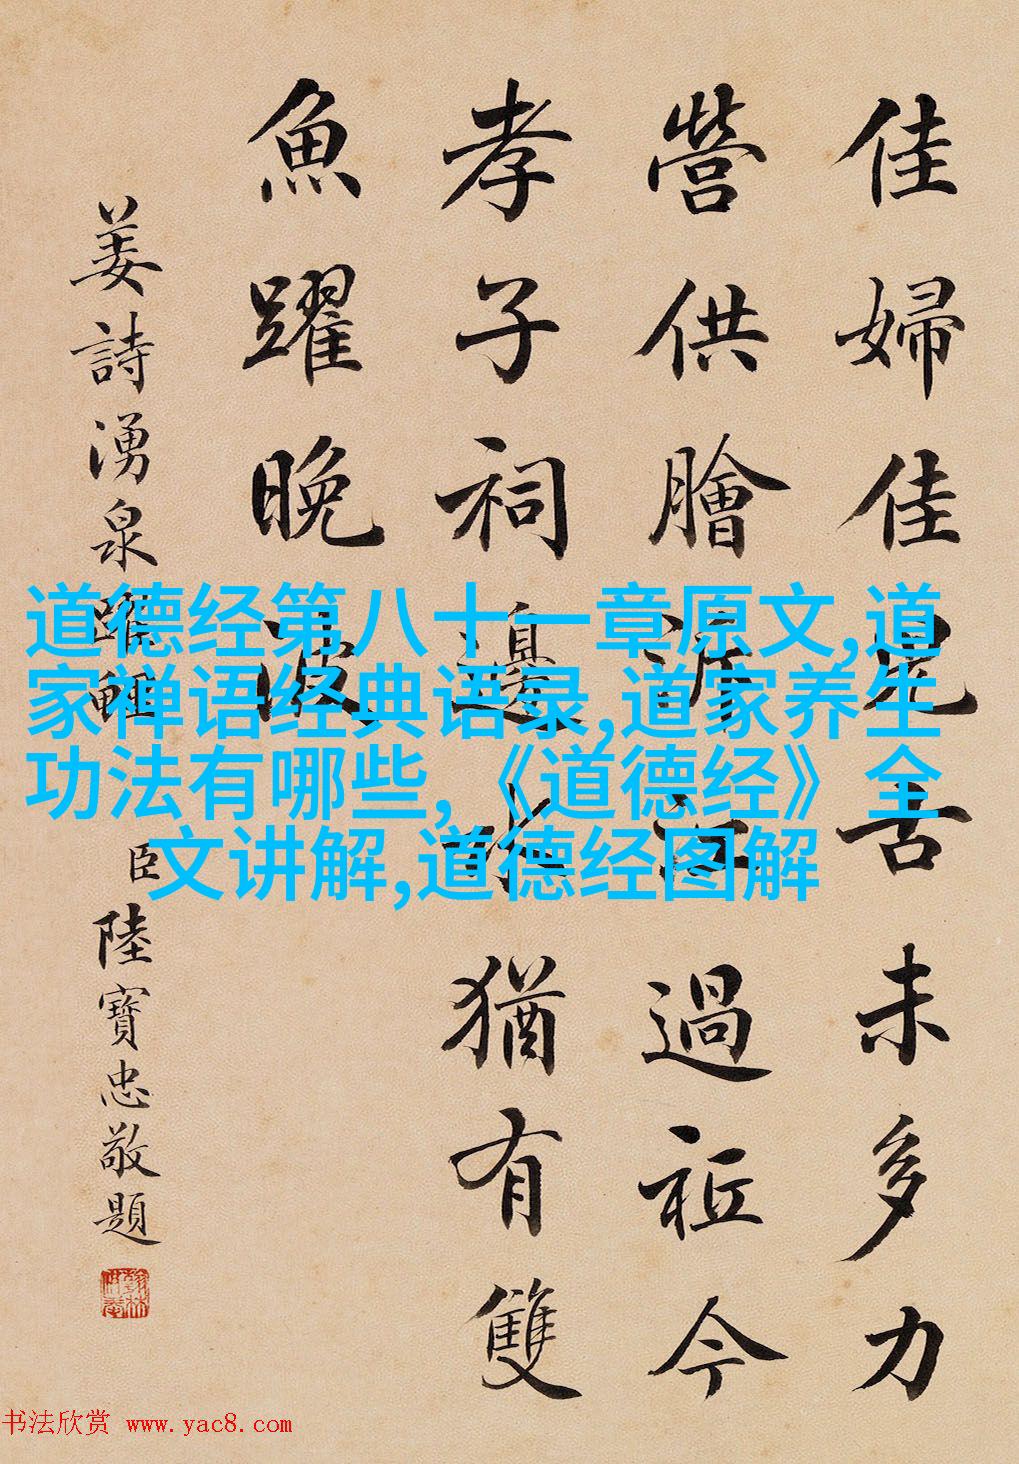 佳婦佳兒古未多力
營供膾泝江過祗今
孝子祠邊水猶有雙
魚躍晚波
姜詩湧泉躍鯉
臣陸寶忠敬題
道德经第八十一章原文,道
家禅语经典语录,道家养生
功法有哪些,《道德经》全
文讲解,道德经图解
书法欣赏 www.yac8.com